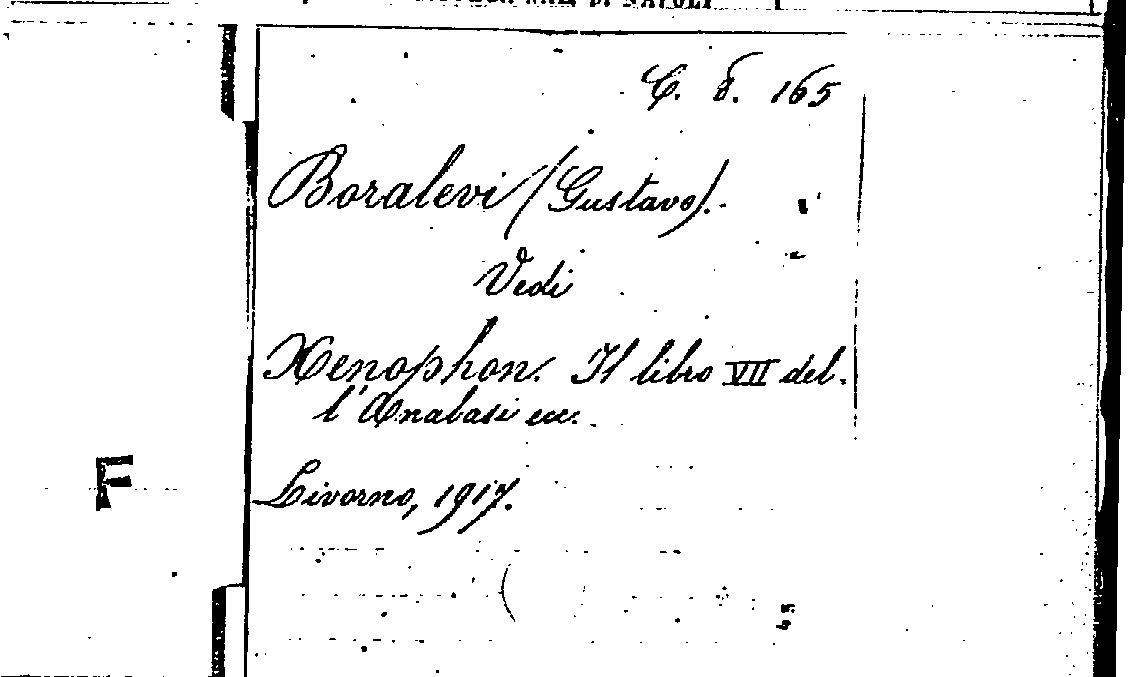 NAZ. DI NAPOLI
C. δ. 165
Boralevi (Gustavo).
Vedi
Xenophon. Il libro VII del-
l'Anabasi ecc.
F
Livorno, 1917.